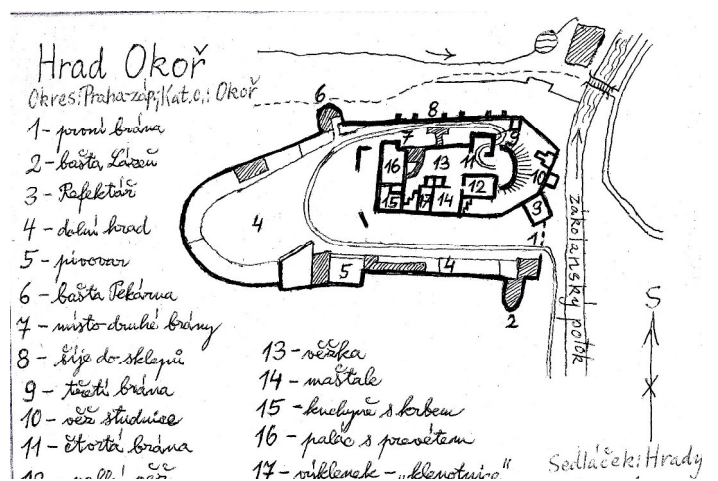 Hrad Okoř
Okres: Praha-záp; Kat.o.: Okoř
1 - první brána
2 - bašta Lázeň
3 - Refektář
4 - dolní hrad
5 - pivovar
6 - bašta Pekárna
7 - místo druhé brány
8 - šíje do sklepů
9 - třetí brána
10 - věž studnice
11 - čtvrtá brána
13 - věžka
14 - maštale
15 - kuchyně s krbem
16 - palác s prevétem
17 - výklenek - „klenotnice"
Sedláček: Hrady
zákolanský potok
S
6
8
7
9
16
13
11
10
12
15
17
14
3
4
1
5
4
2